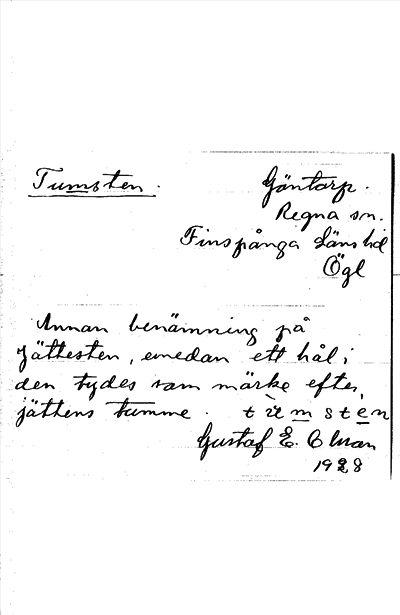 Tumsten.
Göntorp.
Regna sn.
Finspånga Länshd
Ögl
Annan benämning på
Jättesten, emedan ett hål i
den tydes som märke efter
jättens tumme. tu̇̀msten
Gustaf E. Ohman
1928